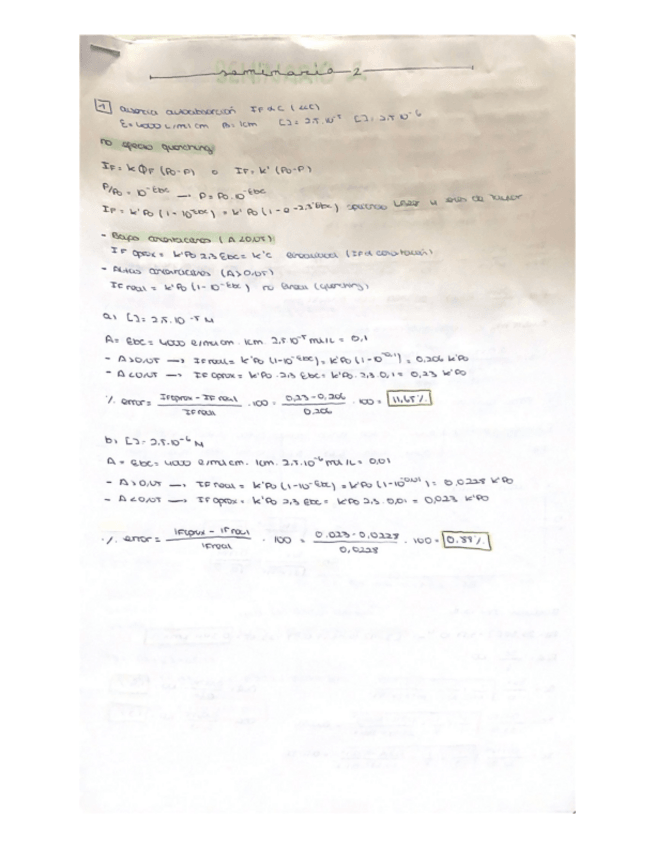 seminario 2
1 ausencia autoabsorción IF α C (LCC)
E = 4000 L/mol cm b = 1cm [ ] = 2.5.10⁻⁵ [ ] = 2.5.10⁻⁶
no efecto quenching
IF = k ΦF (Po-P) o IF = k' (Po-P)
P/Po = 10^-Ebc → P = Po.10^-Ebc
IF = k' Po (1 - 10^-Ebc) = k' Po (1 - e^-2,3Ebc)
- Bajas concentraciones (A<0,05)
IF aprox = k'Po 2,3 Ebc = k'c
- Altas concentraciones (A>0,05)
IF real = k'Po (1 - 10^-Ebc) no lineal (quenching)
a) [ ] = 2,5.10⁻⁵ M
A = Ebc = 4000 L/mol cm . 1cm. 2,5.10⁻⁵ mol/L = 0,1
- A>0,05 → IF real = k'Po (1-10^-Ebc) = k'Po (1-10^-0,1) = 0,206 k'Po
- A<0,05 → IF aprox = k'Po . 2,3 Ebc = k'Po . 2,3 . 0,1 = 0,23 k'Po
% error = IF aprox - IF real / IF real . 100 = 0,23 - 0,206 / 0.206 . 100 = 11,65%
b) [ ] = 2,5.10⁻⁶ M
A = Ebc = 4000 L/mol cm . 1cm. 2,5.10⁻⁶ mol/L = 0,01
- A>0,05 → IF real = k'Po (1-10^-Ebc) = k'Po (1-10^-0,01) = 0,0228 k'Po
- A<0,05 → IF aprox = k'Po 2,3 Ebc = k'Po 2,3 . 0,01 = 0,023 k'Po
% error = IF aprox - IF real / IF real . 100 = 0.023 - 0,0228 / 0,0228 . 100 = 0.87%